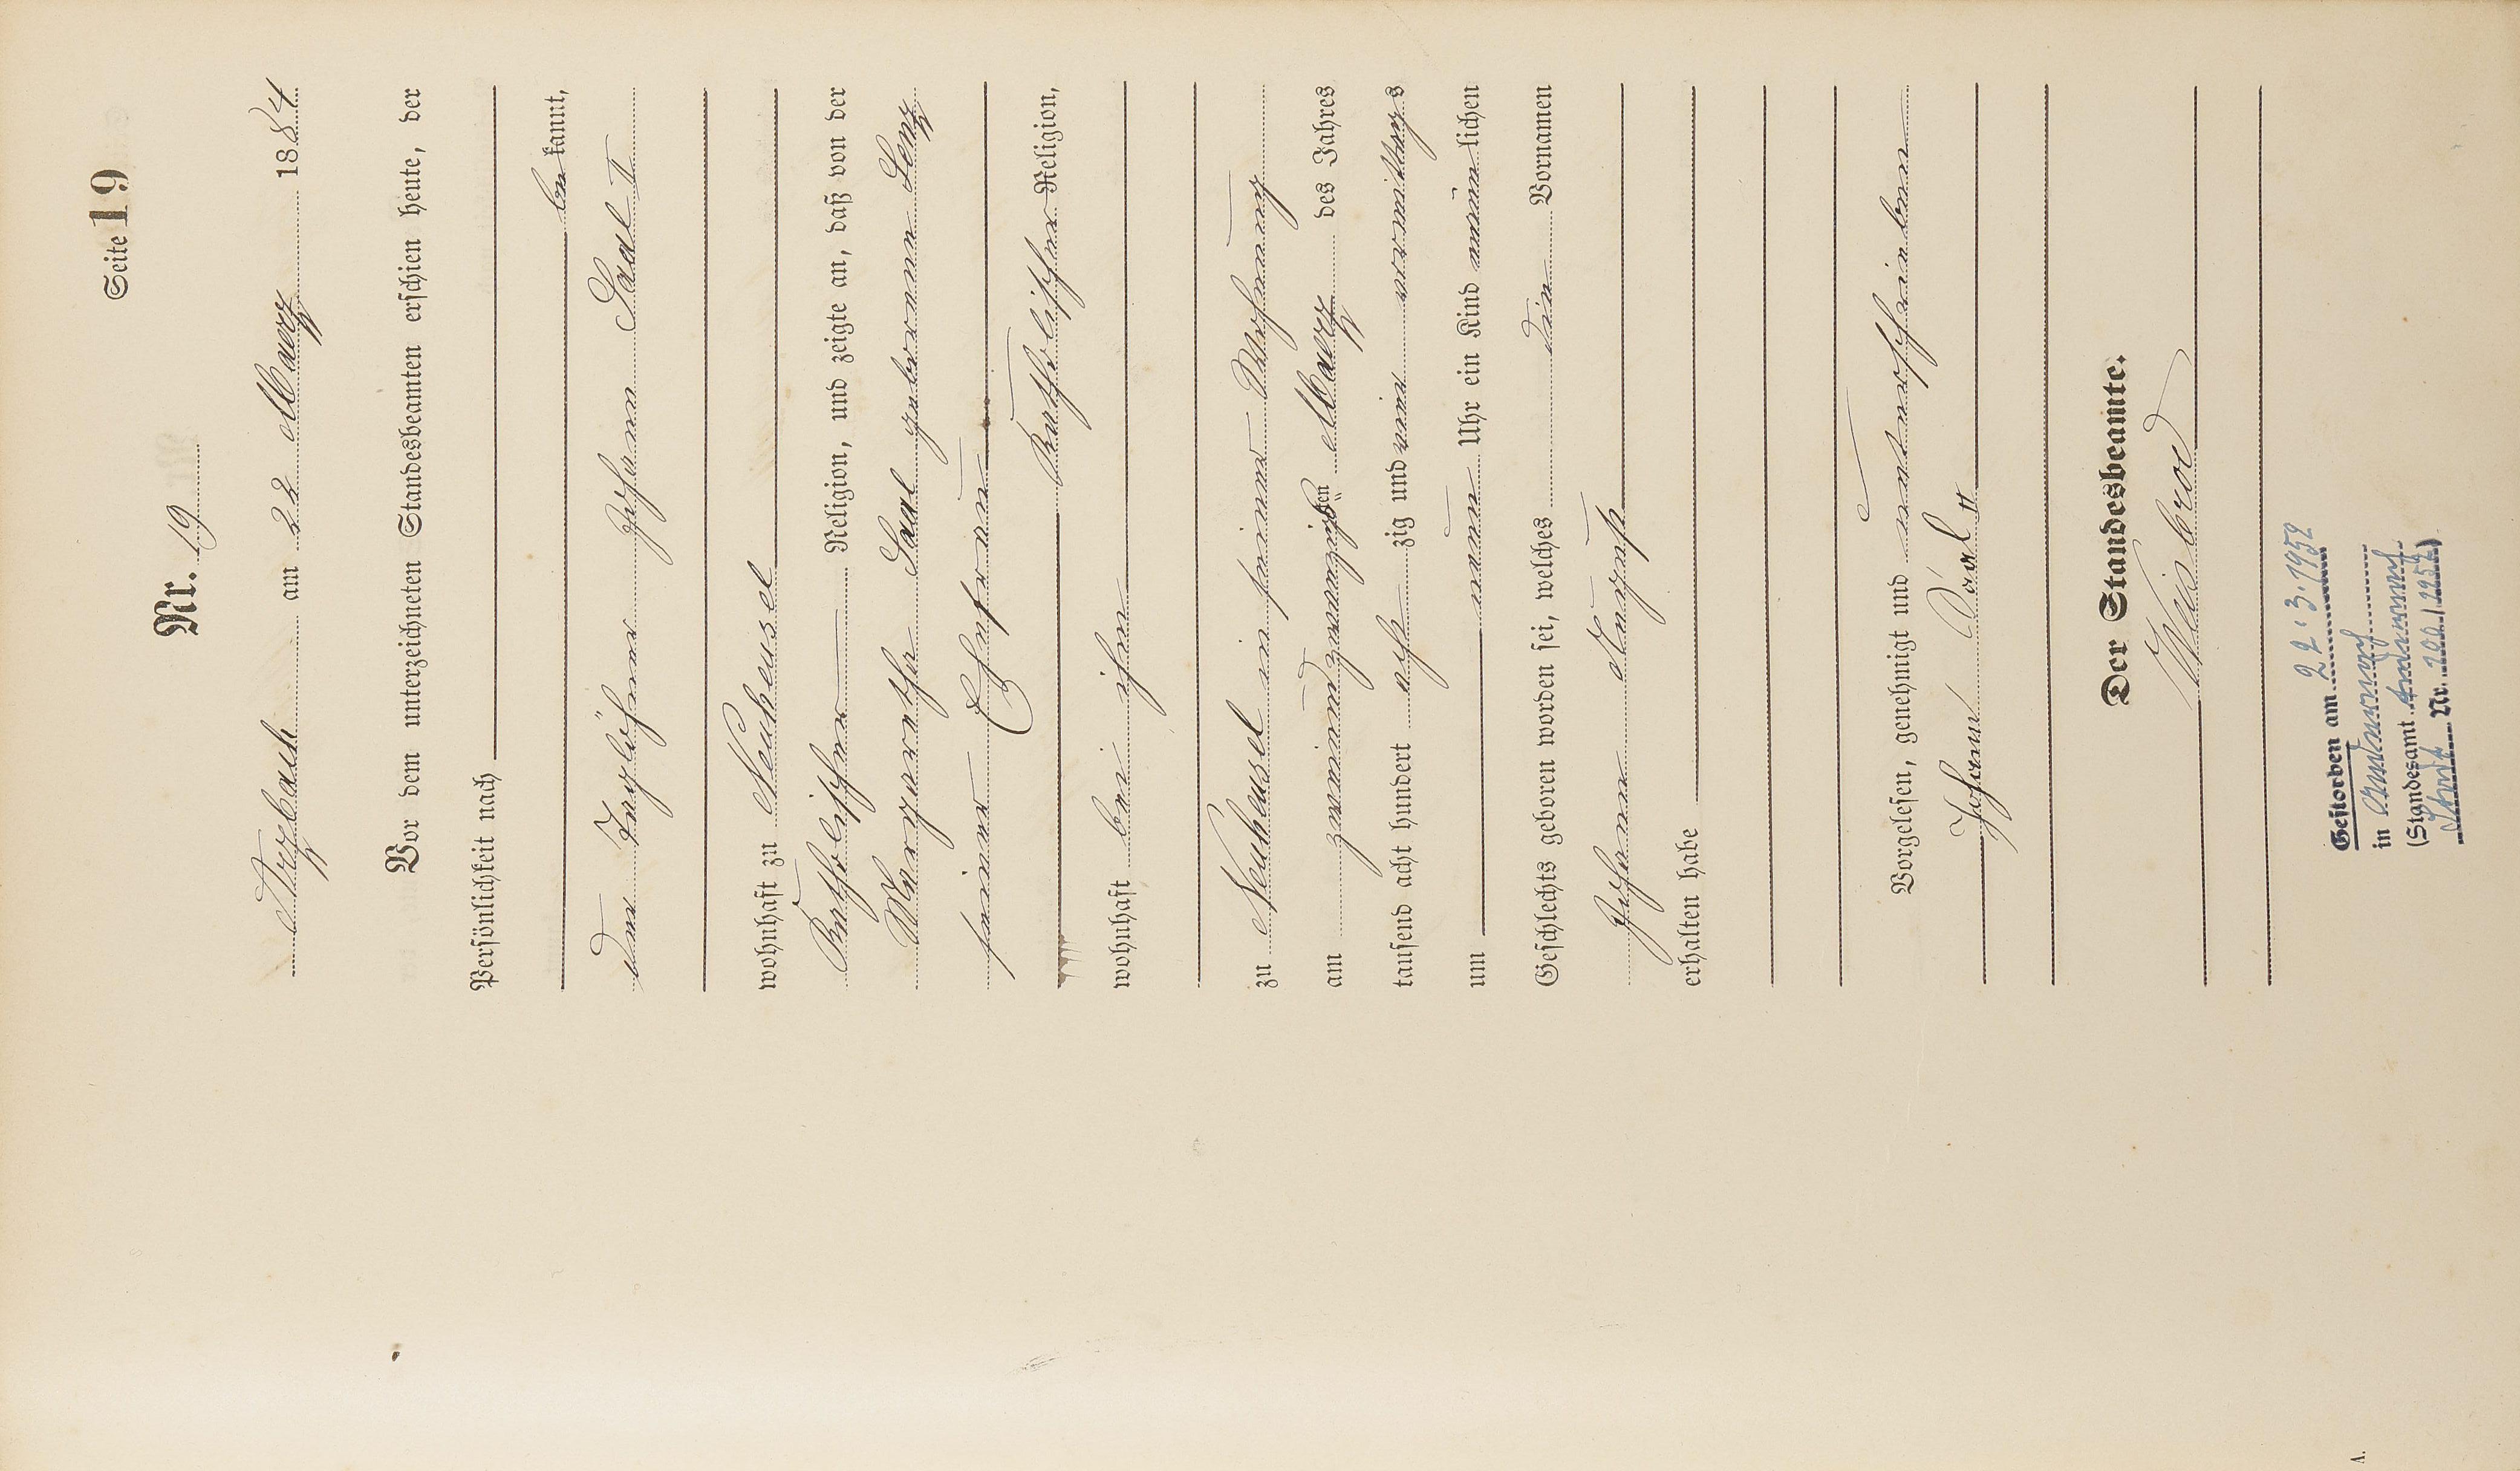 Seite 19
Nr. 19
Arzbach am 22 Maerz 1884
Vor dem unterzeichneten Standesbeamten erschien heute, der
Persönlichkeit nach
bekannt,
der Taglöhner Johann Saal II
wohnhaft zu Neuheusel
Katholischer Religion, und zeigte an, daß von der
Margaretha Saal geborenen Lenz
seiner Ehefrau
Katholischer Religion,
wohnhaft bei ihm
zu Neuheusel in seiner Wohnung
am zweiundzwanzigsten Maerz des Jahres
tausend acht hundert achtzig und vier vormittags
um neun Uhr ein Kind männlichen
Geschlechts geboren worden sei, welches die Vornamen
Johann August
erhalten habe
Vorgelesen, genehmigt und unterschrieben
Johann Saal II
Der Standesbeamte.
Weisbrod
Gestorben am 22.3.1952
in Andernach
(Standesamt Andernach
Stadt Nr. 100/1952)
A.